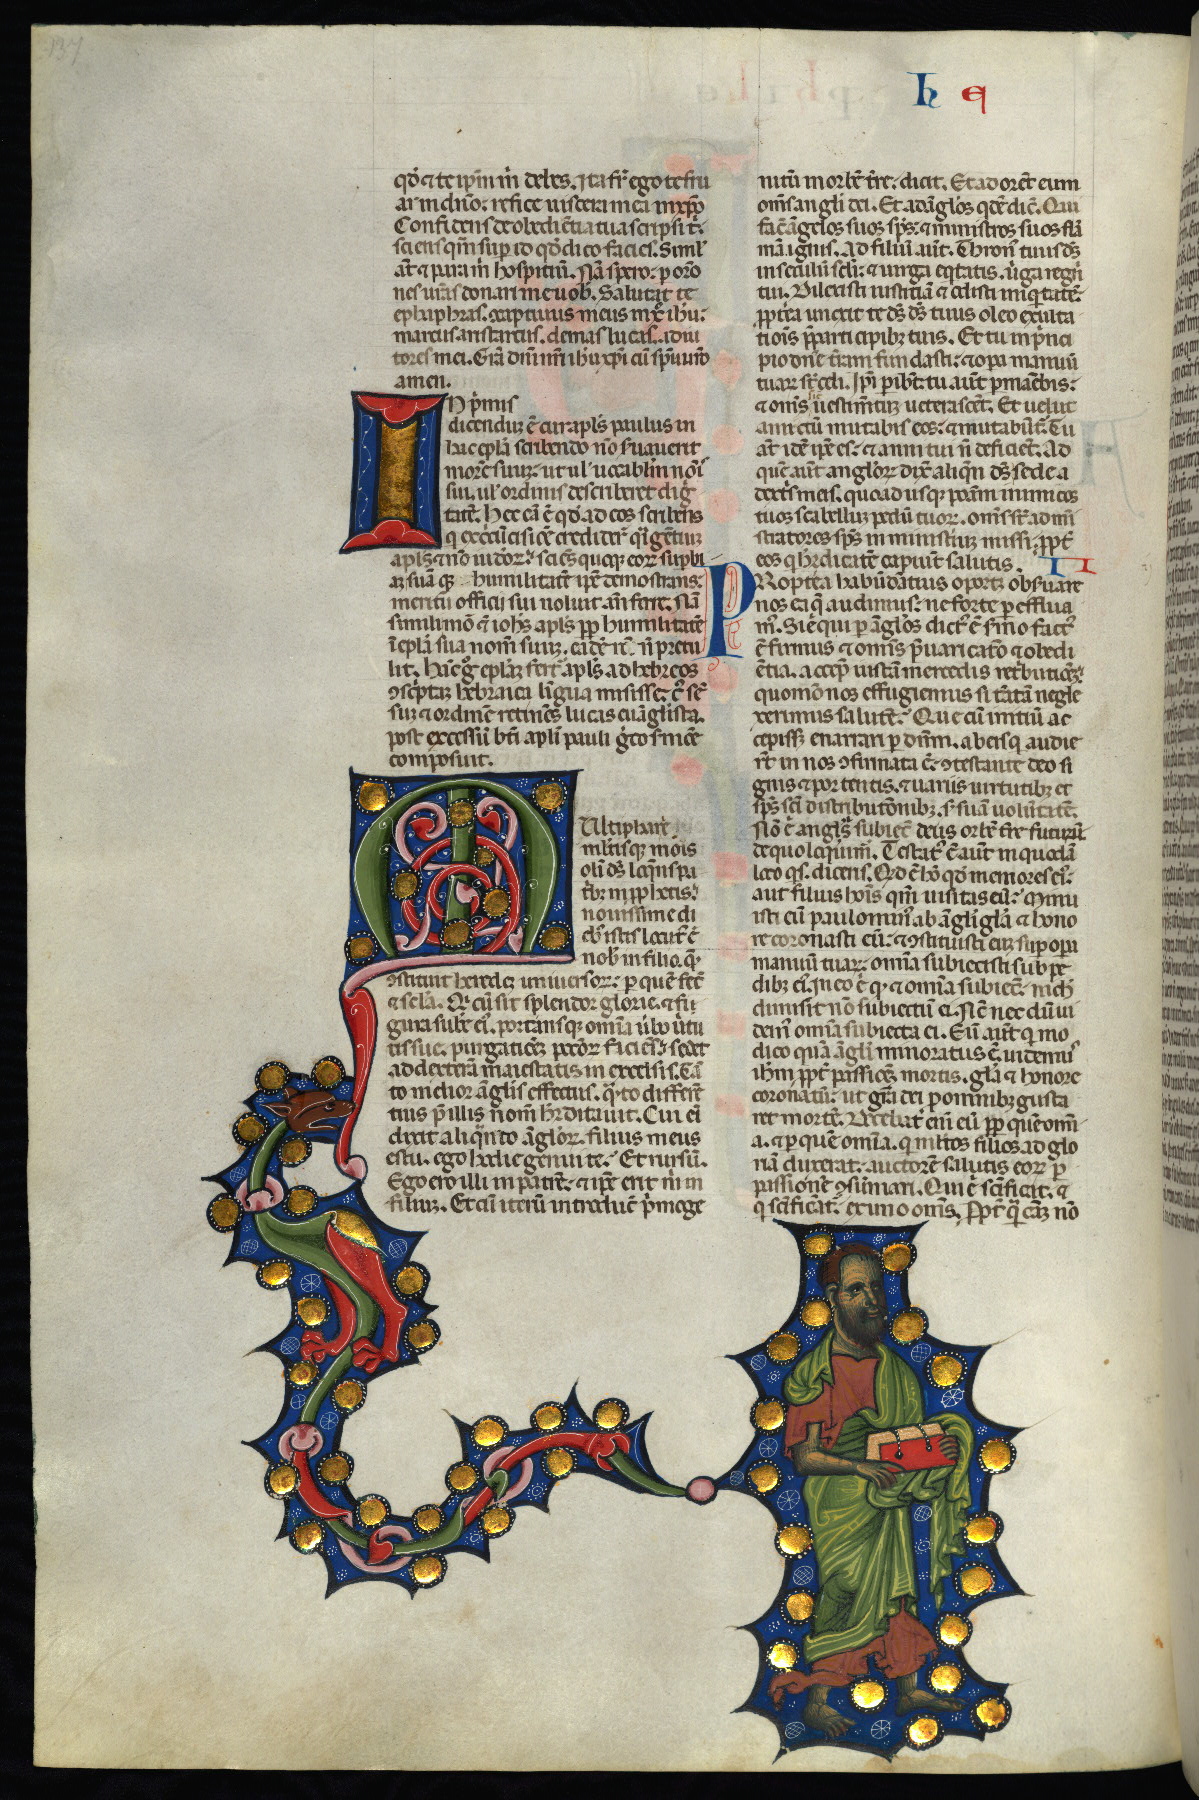 137
h e
qđ ⁊ te ip̄m m̄ debes. Ita fr̄ ego te fru
ar in dn̄o: refice uiscera mea in xp̄o
Confidens de obediētia tua scripsi t̄:
sciens qm̄ sup id qđ dico facies. Simł
at̄ ⁊ para m̄ hospitiū. Nā spero: p orō
nes ur̄as donari me uob. Salutat te
ephaphras. captiuus meus in xp̄ō ihū:
marcus. aristarcus. demas lucas. adiu
tores mei. Grā dn̄i nr̄i ihū xp̄i cū spū ur̄o
amen.
IN p̄mis
dicendū ē cur apłs paulus in
hac epła scribendo nō s̄uauerit
morē suuz: ut uł uocablm̄ nōis
sui. uł ordinis describeret dig
tatē. Hec cā ē qđ ad eos scribens
q ex cōcisiōe credider̄. q̄i gētiuz
apłs ⁊ nō iudeor: sciēs quoq; eor supbi
az suā q; humilitatē ip̄e demōstrans:
meritū officii sui noluit an̄ ferre. Nā
simili mō ⁊ iohs apłs pp̄ humilitatē
ī epła sua nom̄ suuz. eadē rōe n̄ pretu
lit. Hāc g̊ epłaz fert̄ apłs ad hebreos
ɔsc̄ptaz hebraica līgua misisse: c̄ sē
suz ⁊ ordinē retinēs lucas euāglista
post excessū bt̄i apłi pauli g̊co s̄mōe
composuit.
MUltiphariē
multisq; mōis
olī d̄s loq̄ns pa
tb; in p̄phetis:
nouissime di
eb; istis locut̄ ē
nob in filio. q̄
ɔstituit heredez uniuersor: p quē fec̄
⁊ scła. Q̄ cū sit splendor glorie. ⁊ fi
gura subē ei. portansq; omīa ūbo ūtu
tis sue. purgatiōez pecōr faciēs: sedet
ad dexterā maiestatis in excelsis. Tā
to melior āglis effectus. q̄to differē
tius p̄ illis nom̄ h̄editauit. Cui eī
dixit aliq̄ndo āglor. filius meus
es tu. ego hodie genui te. Et rursū.
Ego ero illi in patrē: ⁊ ip̄e erit m̄ in
filiuz. Et cū iterū introduc̄ p̄moge
nitū in orbē t̄re: dicit. Et adorēt eum
om̄s angli dei. Et ad āglos q̄dē dic̄. Qui
fac̄ āgelos suos sps: ⁊ ministros suos flā
mā ignis. Ad filiū aūt. Thron̄ tuus d̄s
in seculū scłi: ⁊ uirga eq̄tatis. uirga regn̄
tui. Dilexisti iustitiā ⁊ odisti iniq̄tatē:
ppt̄ea unxit te d̄s d̄s tuus oleo exulta
tiōis p̄ participib; tuis. Et tu in p̄nci
pio dn̄e t̄ram fundasti: ⁊ opa manuū
tuar st̄ celi. Ip̄i pibt̄: tu aūt p̄manebis:
⁊ om̄s ut uestim̄tuz ueterascēt. Et uelut
amictū mutabis eos: ⁊ mutabūt̄. Tu
aūt idē ip̄e es: ⁊ anni tui n̄ deficiēt. Ad
quē aūt anglor dix̄ aliqn̄ d̄s sede a
dextris meis. quoadusq; ponam inimicos
tuos scabellūz pedū tuor. om̄s st̄ admi
stratores sps in ministiuz missi: ppt̄
eos q h̄editatē capiunt salutis.
II
PRopt̄ea habūdātius oport̄ obs̄uare
nos ea q̄ audiuim̄: ne forte p effluam̄.
Si ē qui p āglos dict̄ ē s̄mo fact̄
ē firmus ⁊ omīs p̄uaricatō ⁊ obedi
ētia. accep iustā mercedis ret̄butiōez:
quomō nos effugiemus si tātā negle
xerimus salutē: Que cū initiū ac
cepisset enarrari p dn̄m. ab eis q audie
rt̄ in nos ɔfirmata ē: ɔtestante deo si
gnis ⁊ portentis. ⁊ uariis uirtutib; et
sps sci distributōnib; s̄ suā uolūtatē.
Nō ē angłs subiec̄ deus orbē t̄re futuruʒ
de quo loq̄mur. Testat̄ ē aūt in quodā
loco qs. dicens. Qđ ē hō qđ memor es ei:
aut filius hōis qm̄ uisitas eū: Minu
isti eū paulomin̄ ab āglis gła ⁊ hono
re coronasti eū: ⁊ ɔstituisti eūz sup opa
manuū tuar: omīa subiecisti sub pe
dib; ei. In eo ē q ⁊ omīa subiec̄: nich
dimisit nō subiectū ei. Nc̄ nec dū ui
dem̄ omīa subiecta ei. Eū aūt q mo
dico quā āgli minoratus ē. uidemus
ihm̄ ppt̄ passiōez mortis. gła ⁊ honore
coronatū: ut grā dei p omnib; gusta
ret mortē. Decebat eni eū pp̄ quē omī
a. ⁊ p quē omīa. q mltos filios ad glo
riā duxerat: auctorē salutis eor p
passionē ɔsūmari. Qui ē sc̄ificat. ⁊
q sc̄ificat̄: ex uno om̄s. Ppt̄ q̄ cāz nō